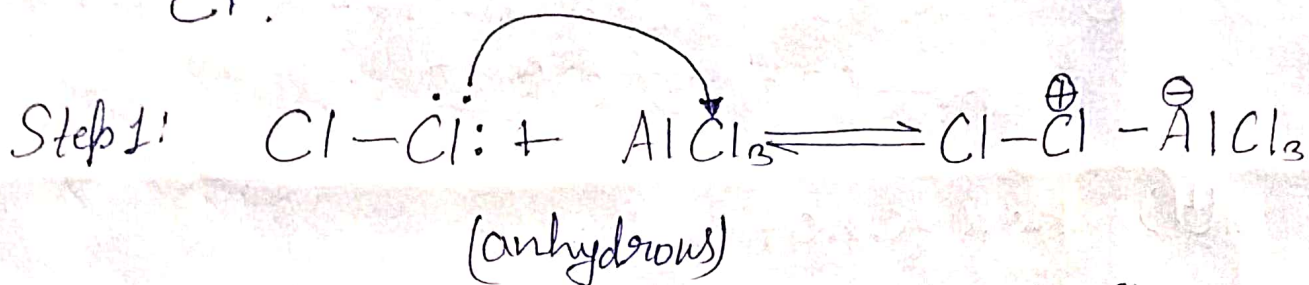 Cl.
Step 1: Cl–C̈l: + AlCl₃ ⇌ Cl–Cl⊕–Al⊖Cl₃
(anhydrous)